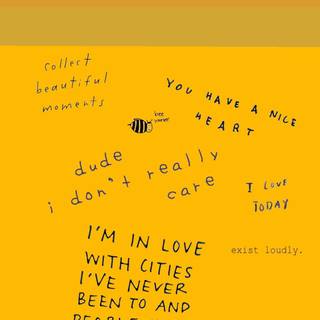 collect
beautiful
moments
YOU HAVE A NICE
HEART
bee
dude
i don't really
care
I LOVE
TODAY
exist loudly.
I'M IN LOVE
WITH CITIES
I'VE NEVER
BEEN TO AND